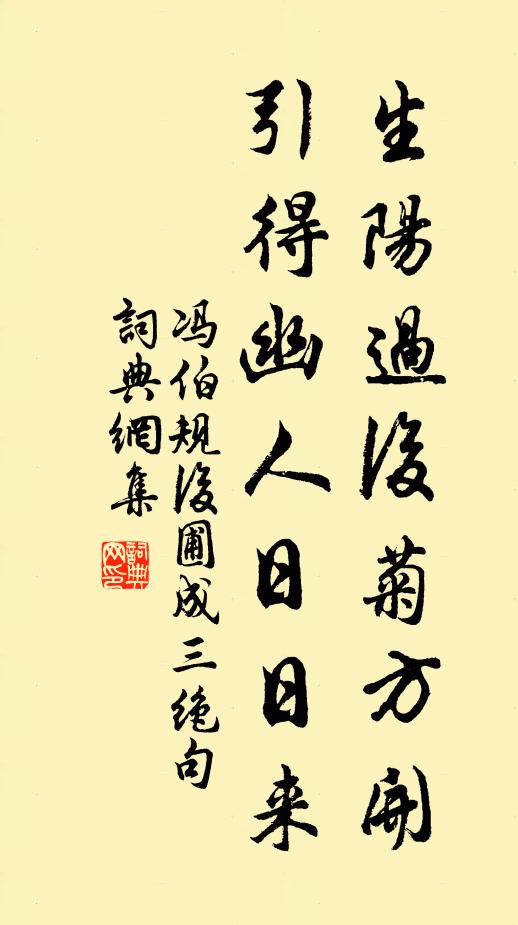 生陽過後菊方開
引得幽人日日来
冯伯规後圃成三绝句
詞典網集
詞典网印